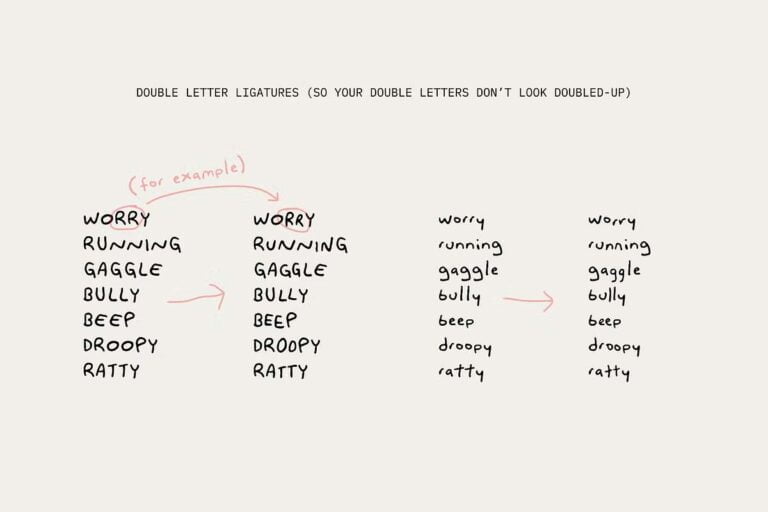 DOUBLE LETTER LIGATURES (SO YOUR DOUBLE LETTERS DON'T LOOK DOUBLED-UP)
(for example)
WORRY
RUNNING
GAGGLE
BULLY
BEEP
DROOPY
RATTY
WORRY
RUNNING
GAGGLE
BULLY
BEEP
DROOPY
RATTY
worry
running
gaggle
bully
beep
droopy
ratty
worry
running
gaggle
bully
beep
droopy
ratty